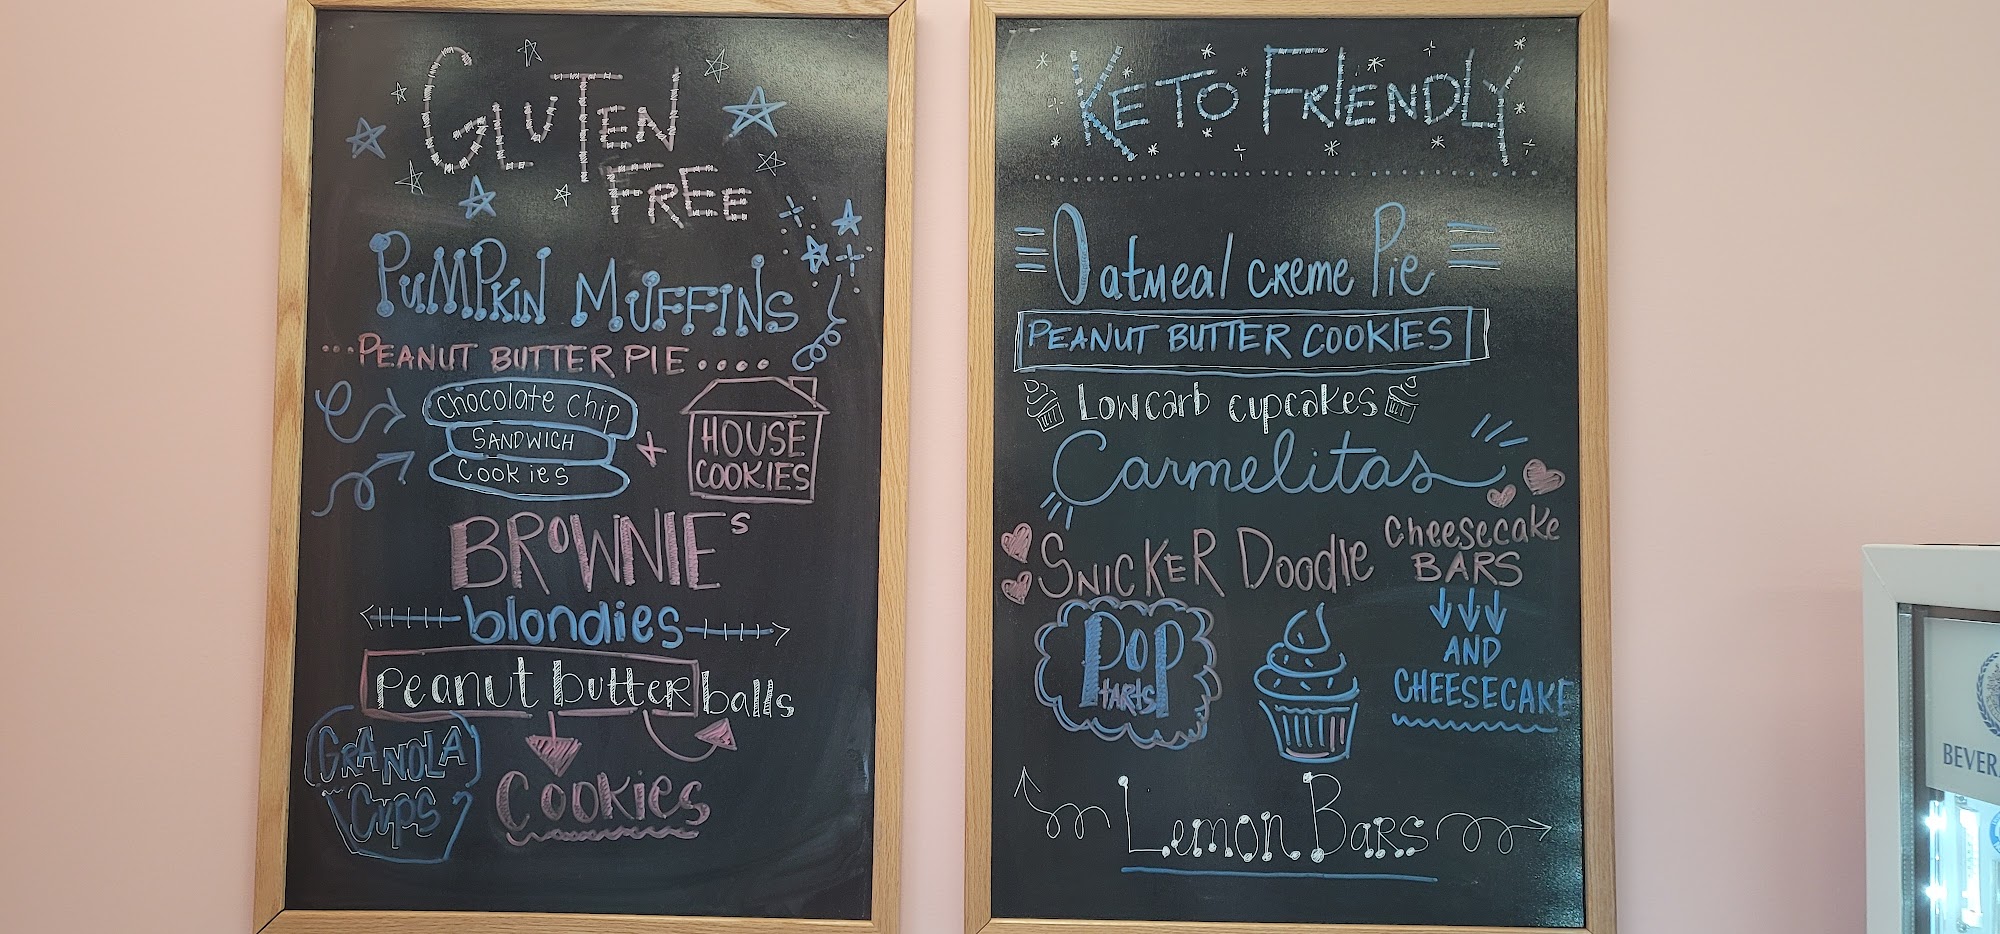 GLUTEN
FREE
PUMPKIN MUFFINS
PEANUT BUTTER PIE
Chocolate Chip
SANDWICH
Cookies
+
HOUSE
COOKIES
BROWNIEs
blondies
Peanut butter balls
GRANOLA
CUPS
Cookies
KETO FRIENDLY
Oatmeal CREME Pie
PEANUT BUTTER COOKIES
Lowcarb cupcakes
Carmelitas
SNICKER Doodle
Cheesecake
BARS
AND
CHEESECAKE
POP
TARTS
Lemon BARS
BEVER